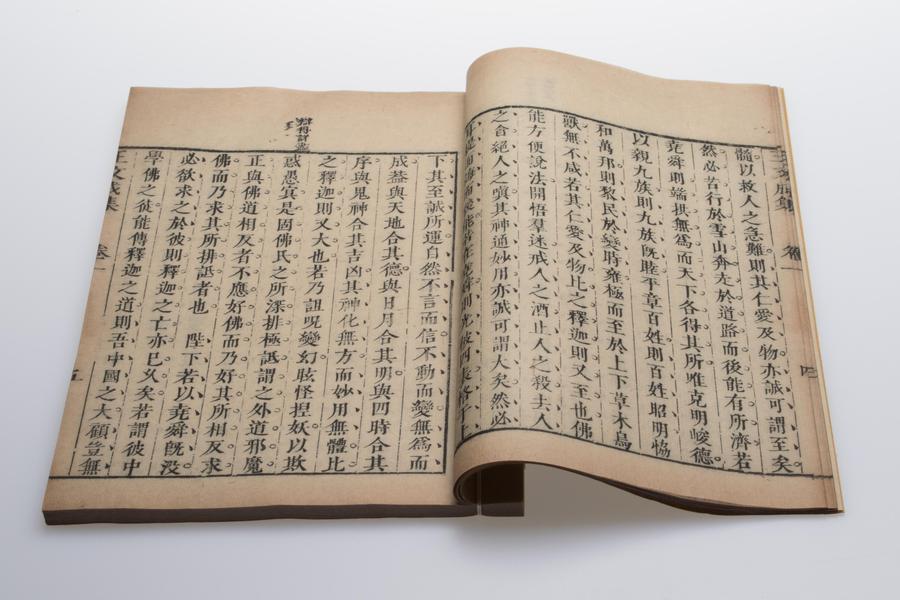 髓以救人之急難則其仁愛及物亦誠可謂至矣
然必苦行於雪山奔走於道路而後能有所濟若
堯舜則端拱無為而天下各得其所惟克明峻德
以親九族則九族既睦平章百姓則百姓昭明協
和萬邦則黎民於變時雍極而至於上下草木鳥
獸無不咸若其仁愛及物比之釋迦則又至也佛
能方便說法開悟羣迷戒人之酒止人之殺去人
之貪絕人之嗔其神通妙用亦誠可謂大矣然必
四
辯得詳盡
下其至誠所運自然不言而信不動而變無為而
成蓋與天地合其德與日月合其明與四時合其
序與鬼神合其吉凶其神化無方而妙用無體比
之釋迦則又大也若乃詛呪變幻眩怪捏妖以欺
惑愚冥是固佛氏之所深排極詆謂之外道邪魔
正與佛道相反者不應好佛而乃好其所相反求
佛而乃求其所排詆者也 陛下若以堯舜既沒
必欲求之於彼則釋迦之亡亦已久矣若謂彼中
學佛之徒能傳釋迦之道則吾中國之大顧豈無
王文成集 卷一 五